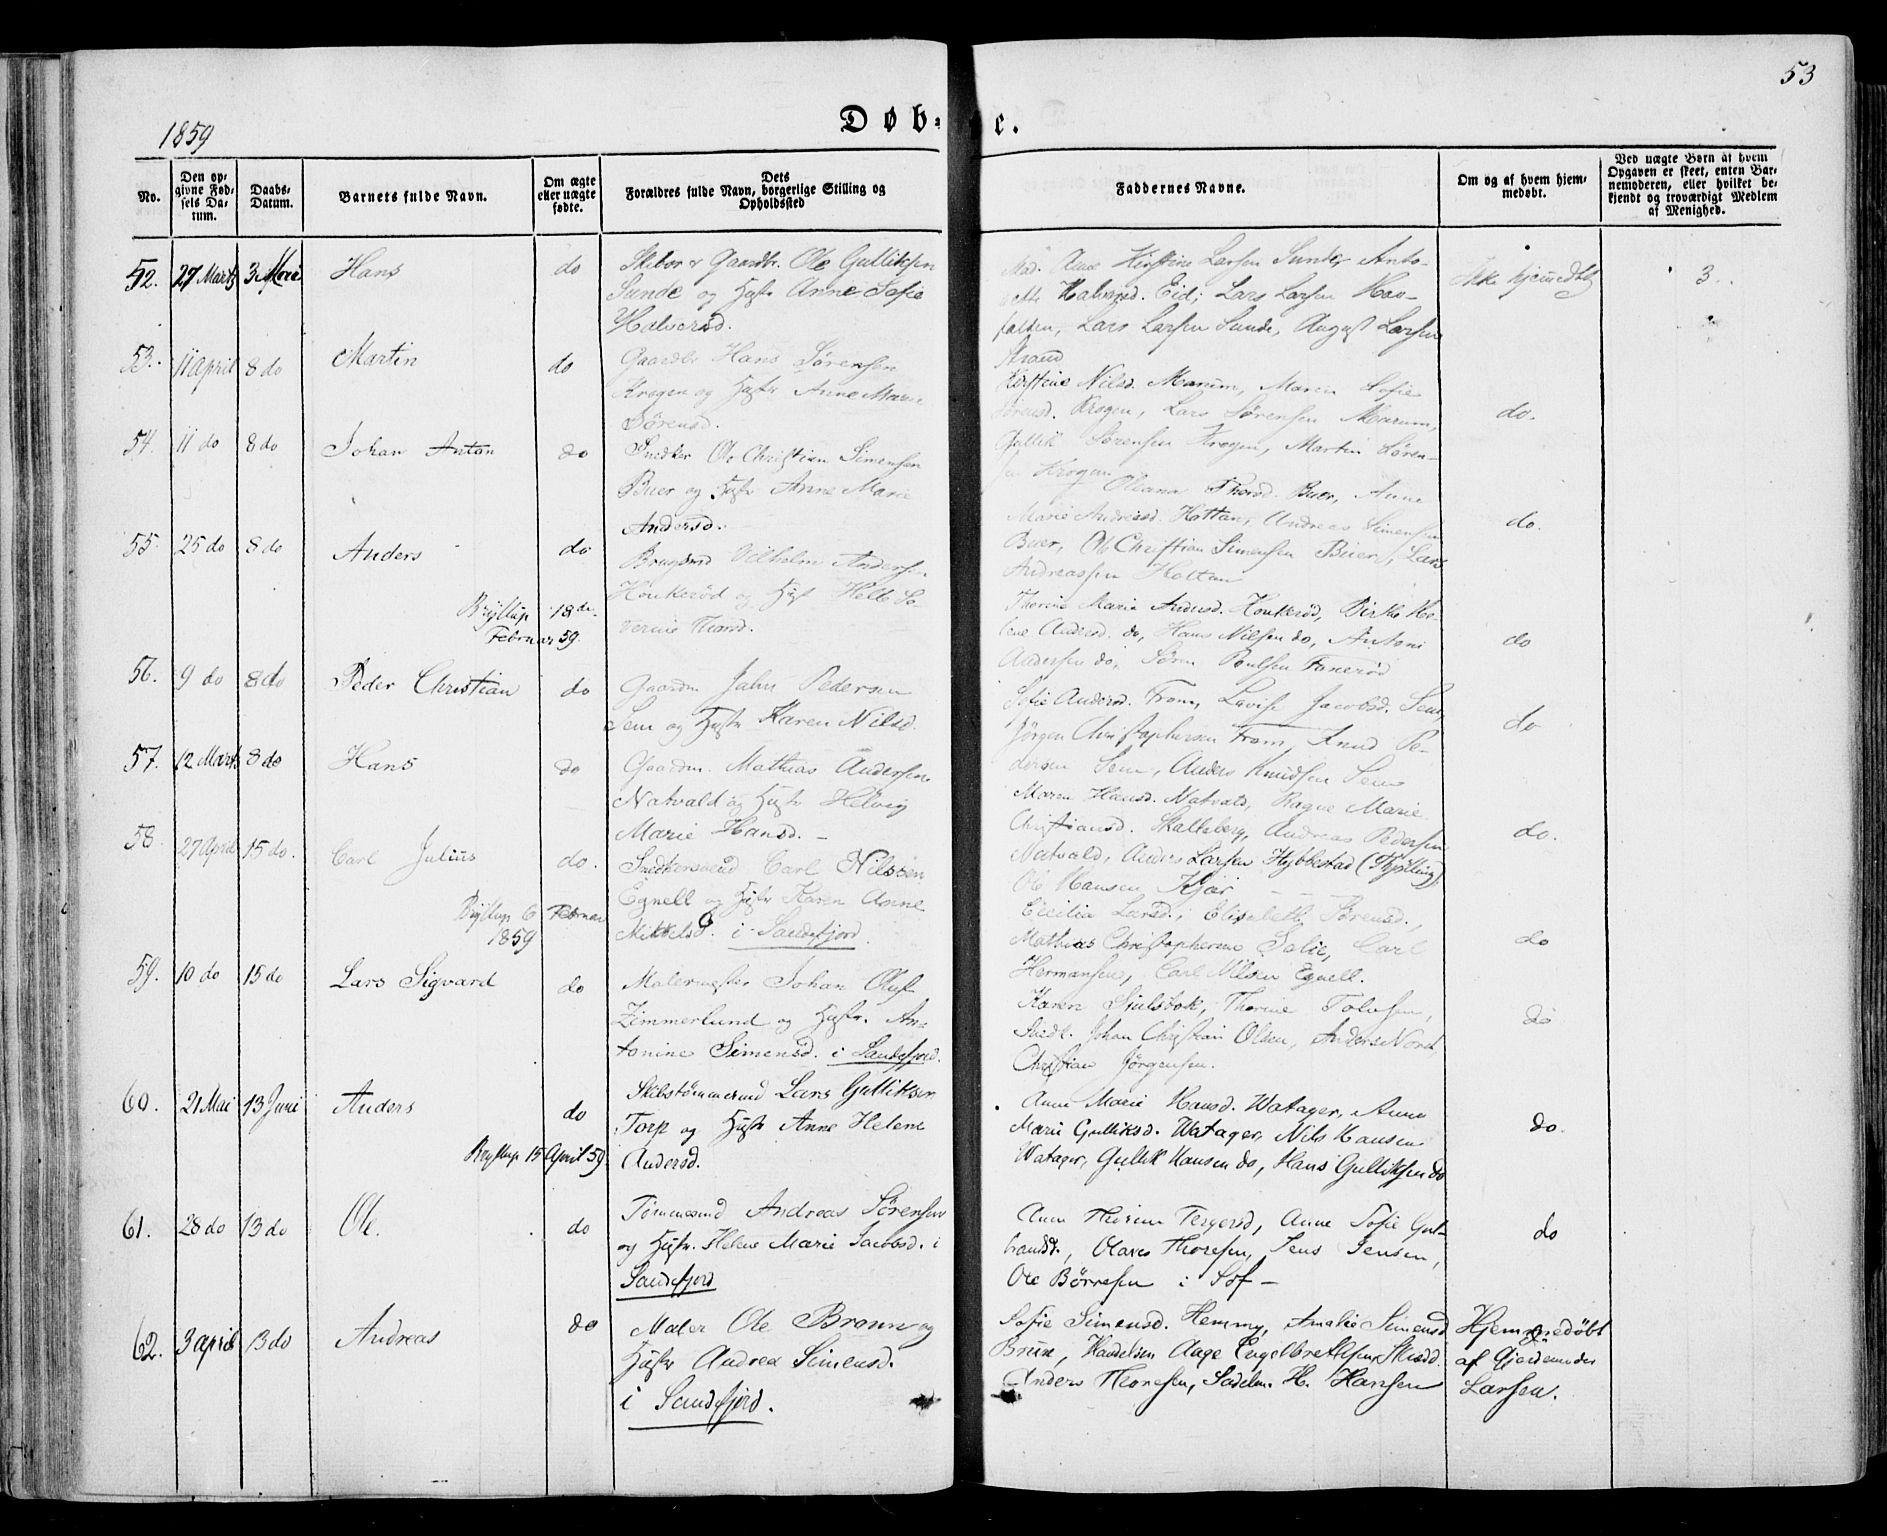 53
1859
Døb- e.
No.
Den opgivne Fødsels Datum.
Daabs-Datum.
Barnets fulde Navn.
Om ægte eller uægte fødte.
Dets Forældres fulde Navn, borgerlige Stilling og Opholdssted
Faddernes Navne.
Om og af hvem hjemmedøbt.
Ved uægte Børn at hvem Opgaven er skeet, enten Barnemoderen, eller hvilket bekjendt og troværdigt Medlem af Menighed.
52. 27 Marts 3 Mai Hans do
Skibor Gaardbr. Ole Gulliksen
Sunde og Hustr Anne Sofie
Halvorsd.
Mad. Anne Kirstine Larsen Sunde, Anto-
nette Halvorsd. Eid, Lars Larsen Hav-
falden, Lars Larsen Sunde, August Larsen
Strand
Ikke hjemedøbt
3
53. 11 April 8 do Martin do
Gaardbr Hans Sørensen
Krogen og Hustr Anne Marie
Sørensd.
Kirstine Nilsd. Marum, Maren Sofie
Sørensd. Krogen, Lars Sørensen Marum,
Gullik Sørensen Krogen, Martin Søren-
sen Krogen
do.
54. 11 do 8 do Johan Anton do
Snedker Ole Christian Simensen
Buer og Hustr Anne Marie
Andersd.
Oleana Thorsd. Buer, Anne
Marie Andreasd. Holtan, Andreas Simensen
Buer, Ole Christian Simensen Buer, Lars
Andreassen Holtan
do.
55. 25 do 8 do Anders do
Brugsmd Vilhelm Andersen
Houkerød og Hust Helle Se-
verine Thorsd.
Bryllup 18de
Februar 59.
Thorine Maria Andersd. Houkerød, Birthe He-
lene Andersd. do, Hans Nilsen do, Antoni
Andersen do, Søren Poulsen Fanerød
do
56. 9 do 8 do Peder Christian do
Gaardm Jahn Pedersen
Sem og Hustr Karen Nilsd.
Sofie Andersd. From, Lovise Jacobsd. Sem,
Jørgen Christophersen From, Knud Pe-
dersen Sem, Anders Knudsen Sem
do
57. 12 Marts 8 do Hans do
Gaardm. Mathias Andersen
Natvald og Hustr Helvig
Marie Hansd. -
Maren Hansd. Natvald, Ragne Marie
Christiansd. Skallsberg, Andreas Pedersen
Natvald, Anders Larsen Hybbestad (Kjølling)
Ole Hansen Kjær
do.
58 27 April 15 do. Carl Julius do.
Snedkersvend Carl Nilssen
Egnell og Hustr Karen Anne
Mikkelsd. i Sandefjord.
Bryllup 6 Februar
1859
Cecilia Larsd., Elisabeth Sørensd.,
Mathias Christophersen Salie, Carl
Hermansen, Carl Nilsen Egnell.
do
59. 10 do 15 do Lars Sigvard do
Malermester Johan Oluf
Zimmerlund og Hustr. An-
tonine Simensd. i Sandefjord.
Karen Sjulstok, Thorine Tolvsen,
Snedk. Johan Christian Olsen, Anders Nord,
Christian Jørgensen.
do
60. 21 Mai 13 Juni Anders do
Skibstømmermd Lars Gulliksen
Torp og Hustr Anne Helene
Andersd.
Bryllup 15 April 59.
Anne Marie Hansd. Watager, Anne
Marie Gulliksd. Watager, Nils Hansen
Watager, Gullik Hansen do, Hans Gulliksen do
do.
61. 28 do 13 do Ole. do
Tømmermd Andreas Sørensen
og Hustr. Helene Marie Jacobsd. i
Sandefjord
Anne Thorine Tergersd, Anne Sofie Gul-
brandsd., Olaves Thoresen, Jens Jensen,
Ole Børresen i Sdf -
do
62. 3 april 13 do Andreas do
Maler Ole Bronn og
Hustr Andrea Simensd.
i Sandefjord.
Sofie Simensd. Hemmy, Amalie Simensd
Brune, Handelsm Aage Engelbrethsen, Skrædd.
Anders Thoresen, Sadelm. H. Hansen
Hjemmedøbt
af Gjordemoder
Larsen.